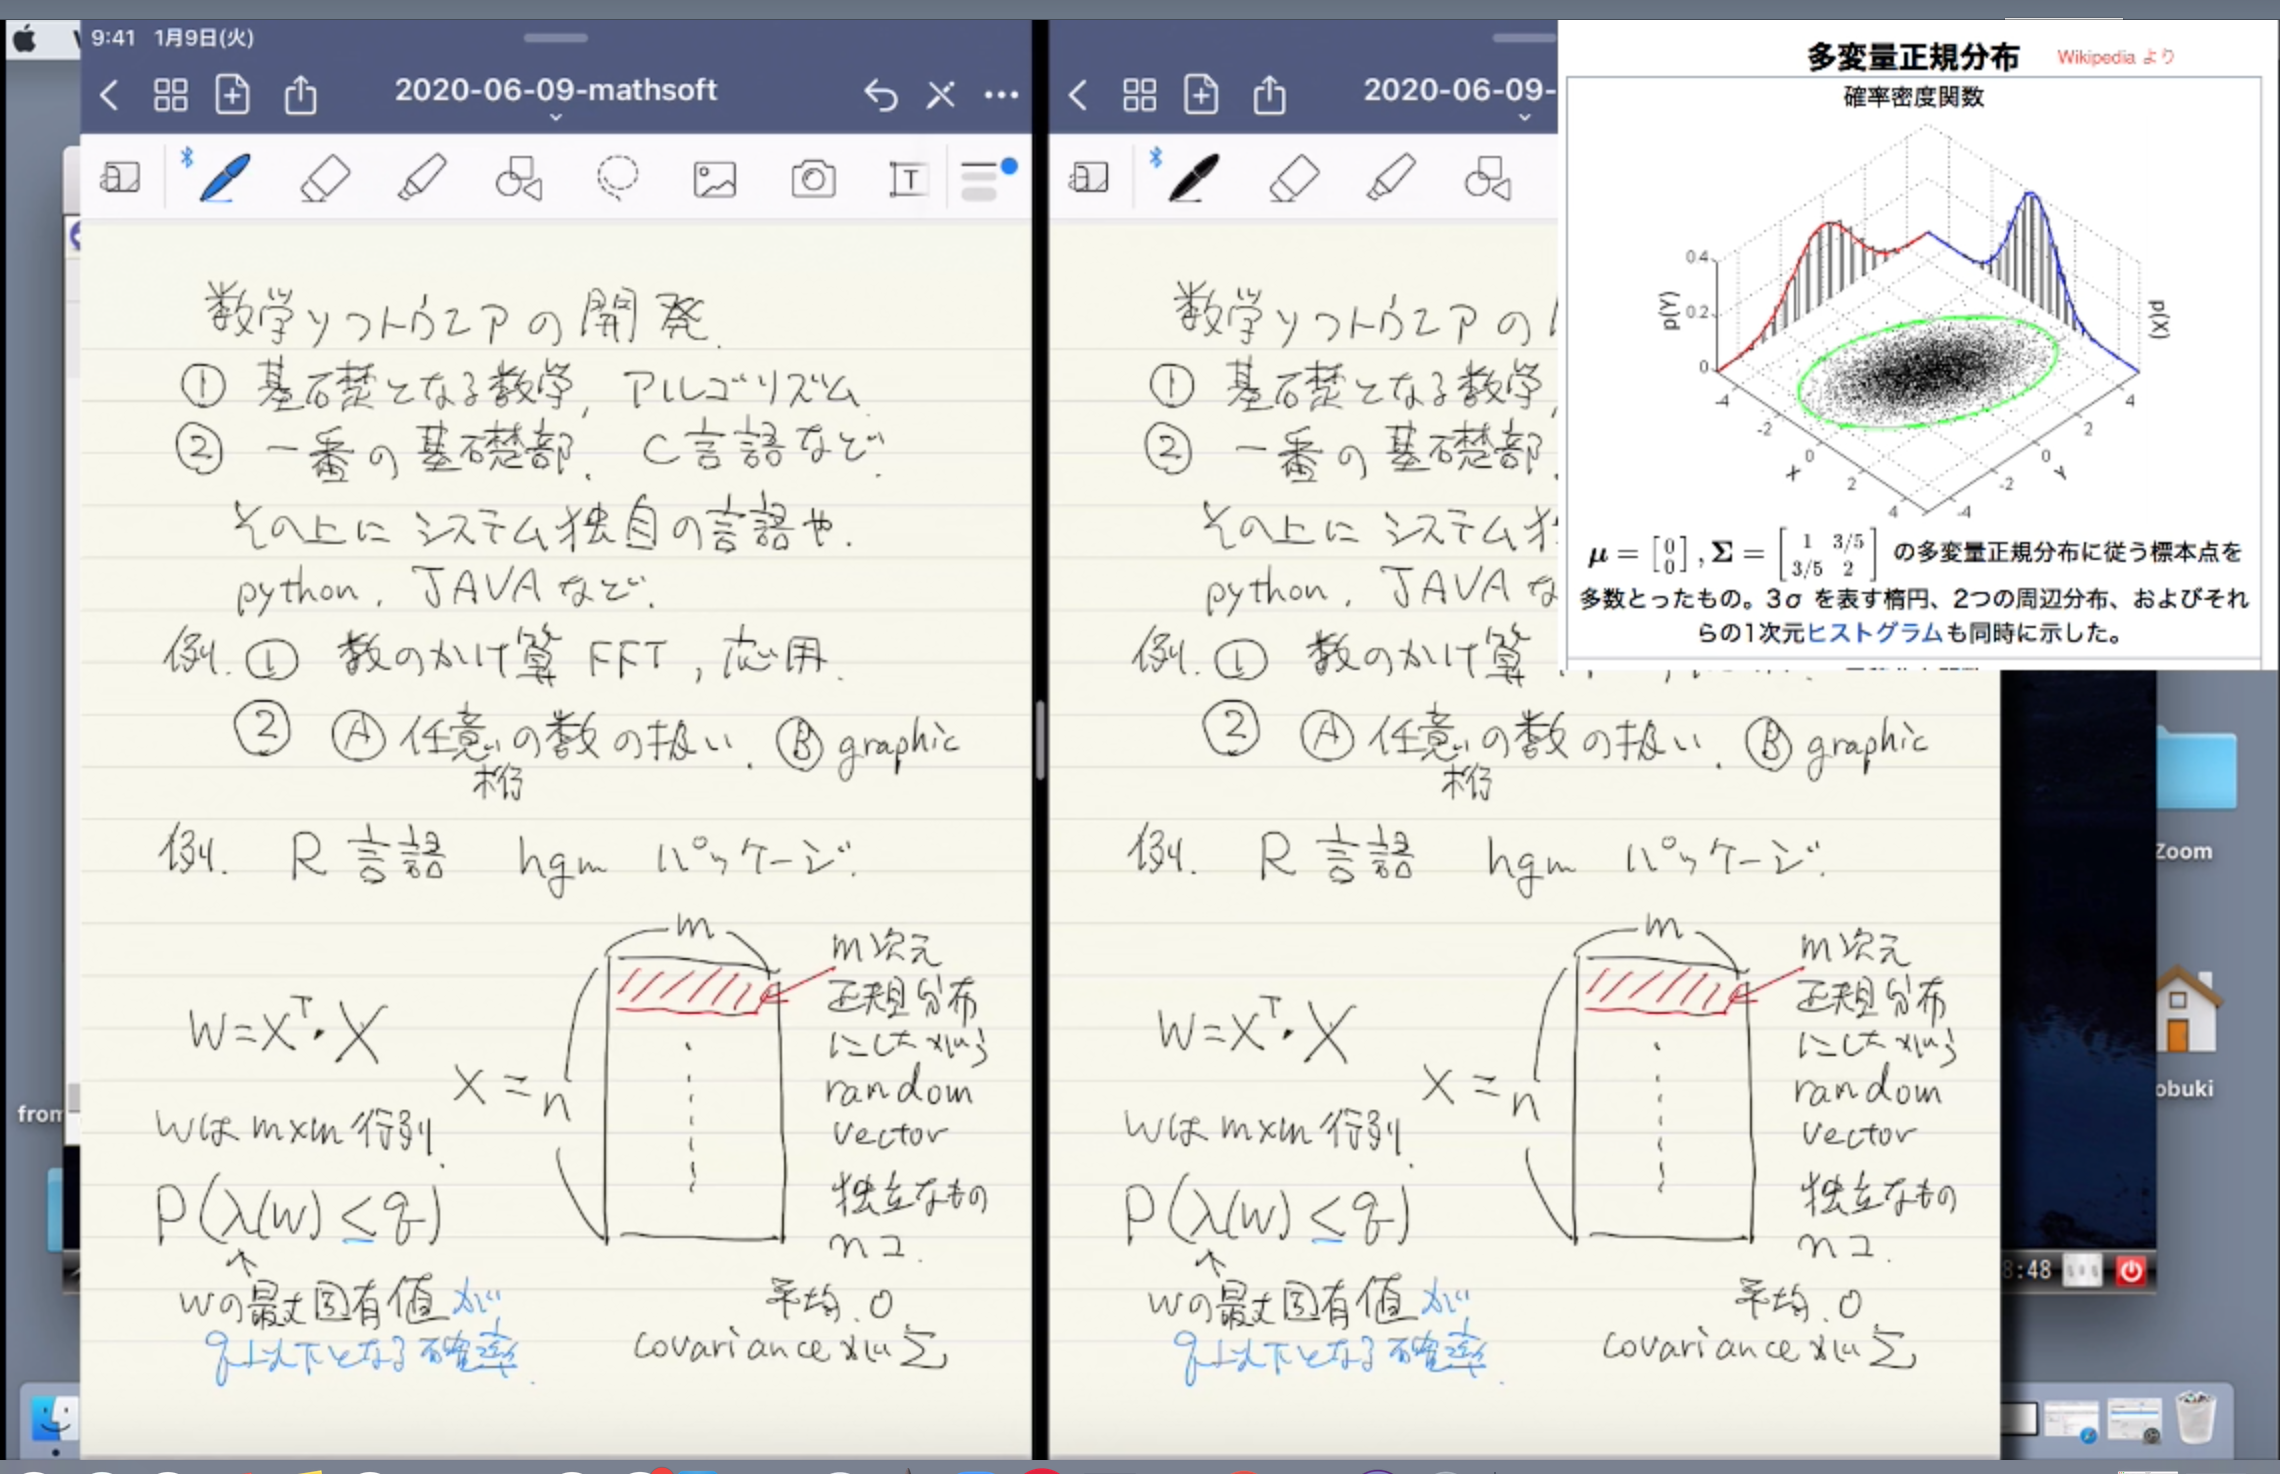 9:41 1月9日(火)
2020-06-09-mathsoft
数学ソフトウエアの開発.
① 基礎となる数学, アルゴリズム
② 一番の基礎部. C言語など.
その上にシステム独自の言語や.
python, JAVAなど.
例. ① 数のかけ算 FFT, 応用.
② Ⓐ 任意の数の扱い. Ⓑ graphic
桁
例. R言語 hgm パッケージ.
m
m次元
正規分布
にしたがう
random
vector
独立なもの
nコ.
W=X^T・X
X = n
Wは m×m 行列.
P(λ(W) ≤ q)
↑
Wの最大固有値が
q以下となる確率.
平均 0
covariance が Σ
2020-06-09-
数学ソフトウエアの
① 基礎となる数学,
② 一番の基礎部.
その上にシステム
python, JAVA な
例. ① 数のかけ算
② Ⓐ 任意の数の扱い. Ⓑ graphic
桁
例. R言語 hgm パッケージ.
m
m次元
正規分布
にしたがう
random
vector
独立なもの
nコ.
W=X^T・X
X = n
Wは m×m 行列.
P(λ(W) ≤ q)
↑
Wの最大固有値が
q以下となる確率.
平均 0
covariance が Σ
多変量正規分布 Wikipedia より
確率密度関数
0.4
0.2
0
p(Y)
p(X)
-4 -2 0 2 4
X
-4 -2 0 2 4
Y
μ = [0 0], Σ = [1 3/5 3/5 2] の多変量正規分布に従う標本点を
多数とったもの。3σ を表す楕円、2つの周辺分布、およびそれ
らの1次元ヒストグラムも同時に示した。
Zoom
obuki
from
8:48